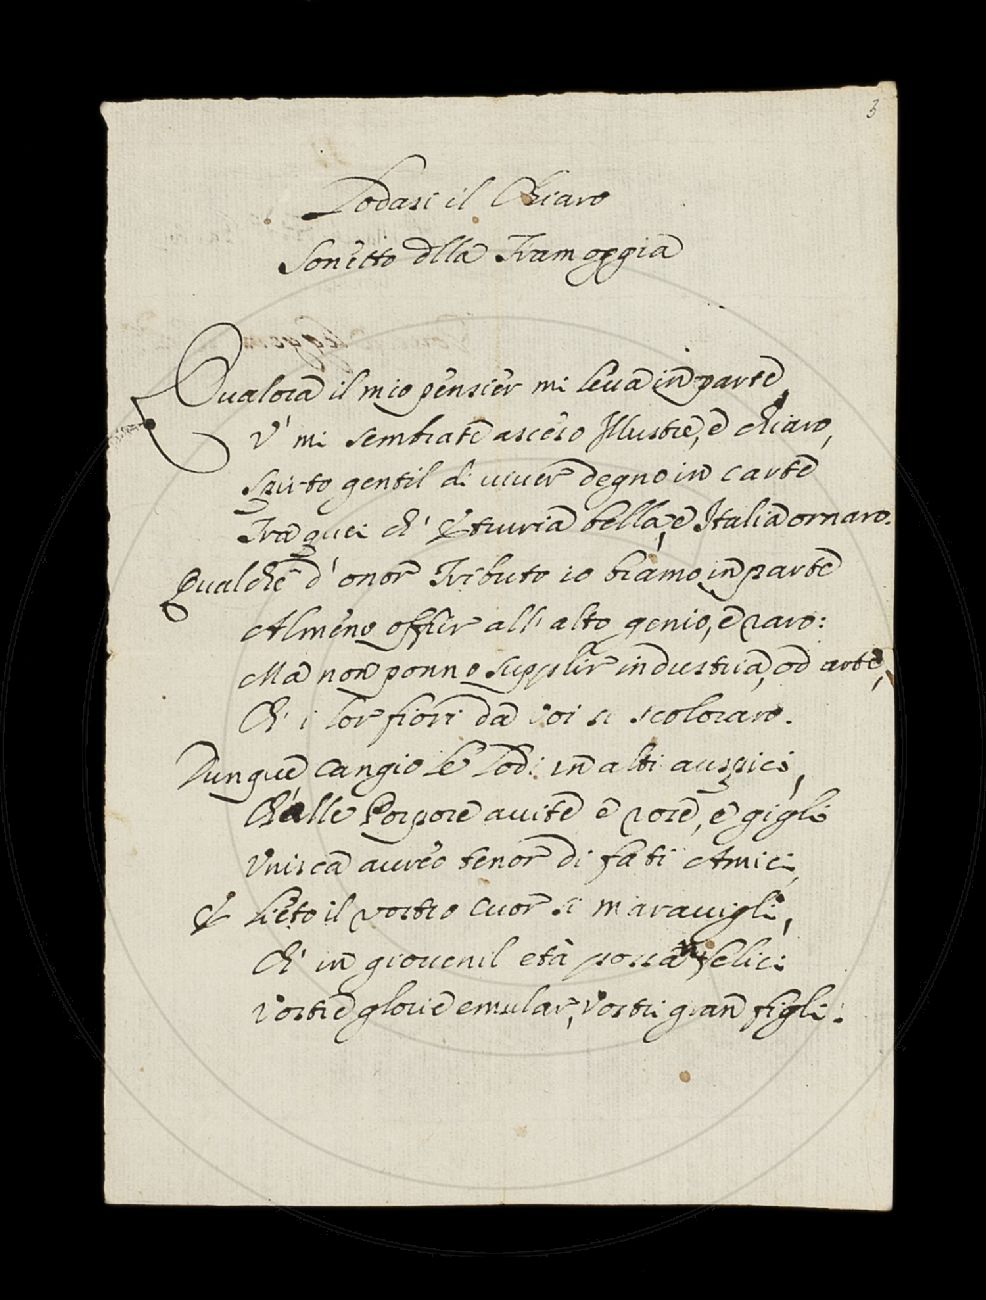 3
Lodasi il Chiaro
Sonetto dlla Tramoggia
Qualora il mio pensier mi leua in parte,
V' mi sembrate asceso Illustre, e chiaro,
Spirto gentil di viuer degno in carte
Tra quei ch' Etruria bella, e Italia ornaro.
Qualche d' onor Tributo io bramo in parte
Almeno offrir all' alto genio, e raro:
Ma non ponno supplir industria, od arte,
Ch' i lor fiori da voi si scoloraro.
Dunque cangio le Lodi in alti auspici,
Ch' alle Porpore auite e rose, e gigli
Vnisca aureo tenor di fati Amici,
E lieto il vostro cuor si marauigli,
Ch' in giouenil età possan felici
Vostre glorie emular, Vostri gran figli.